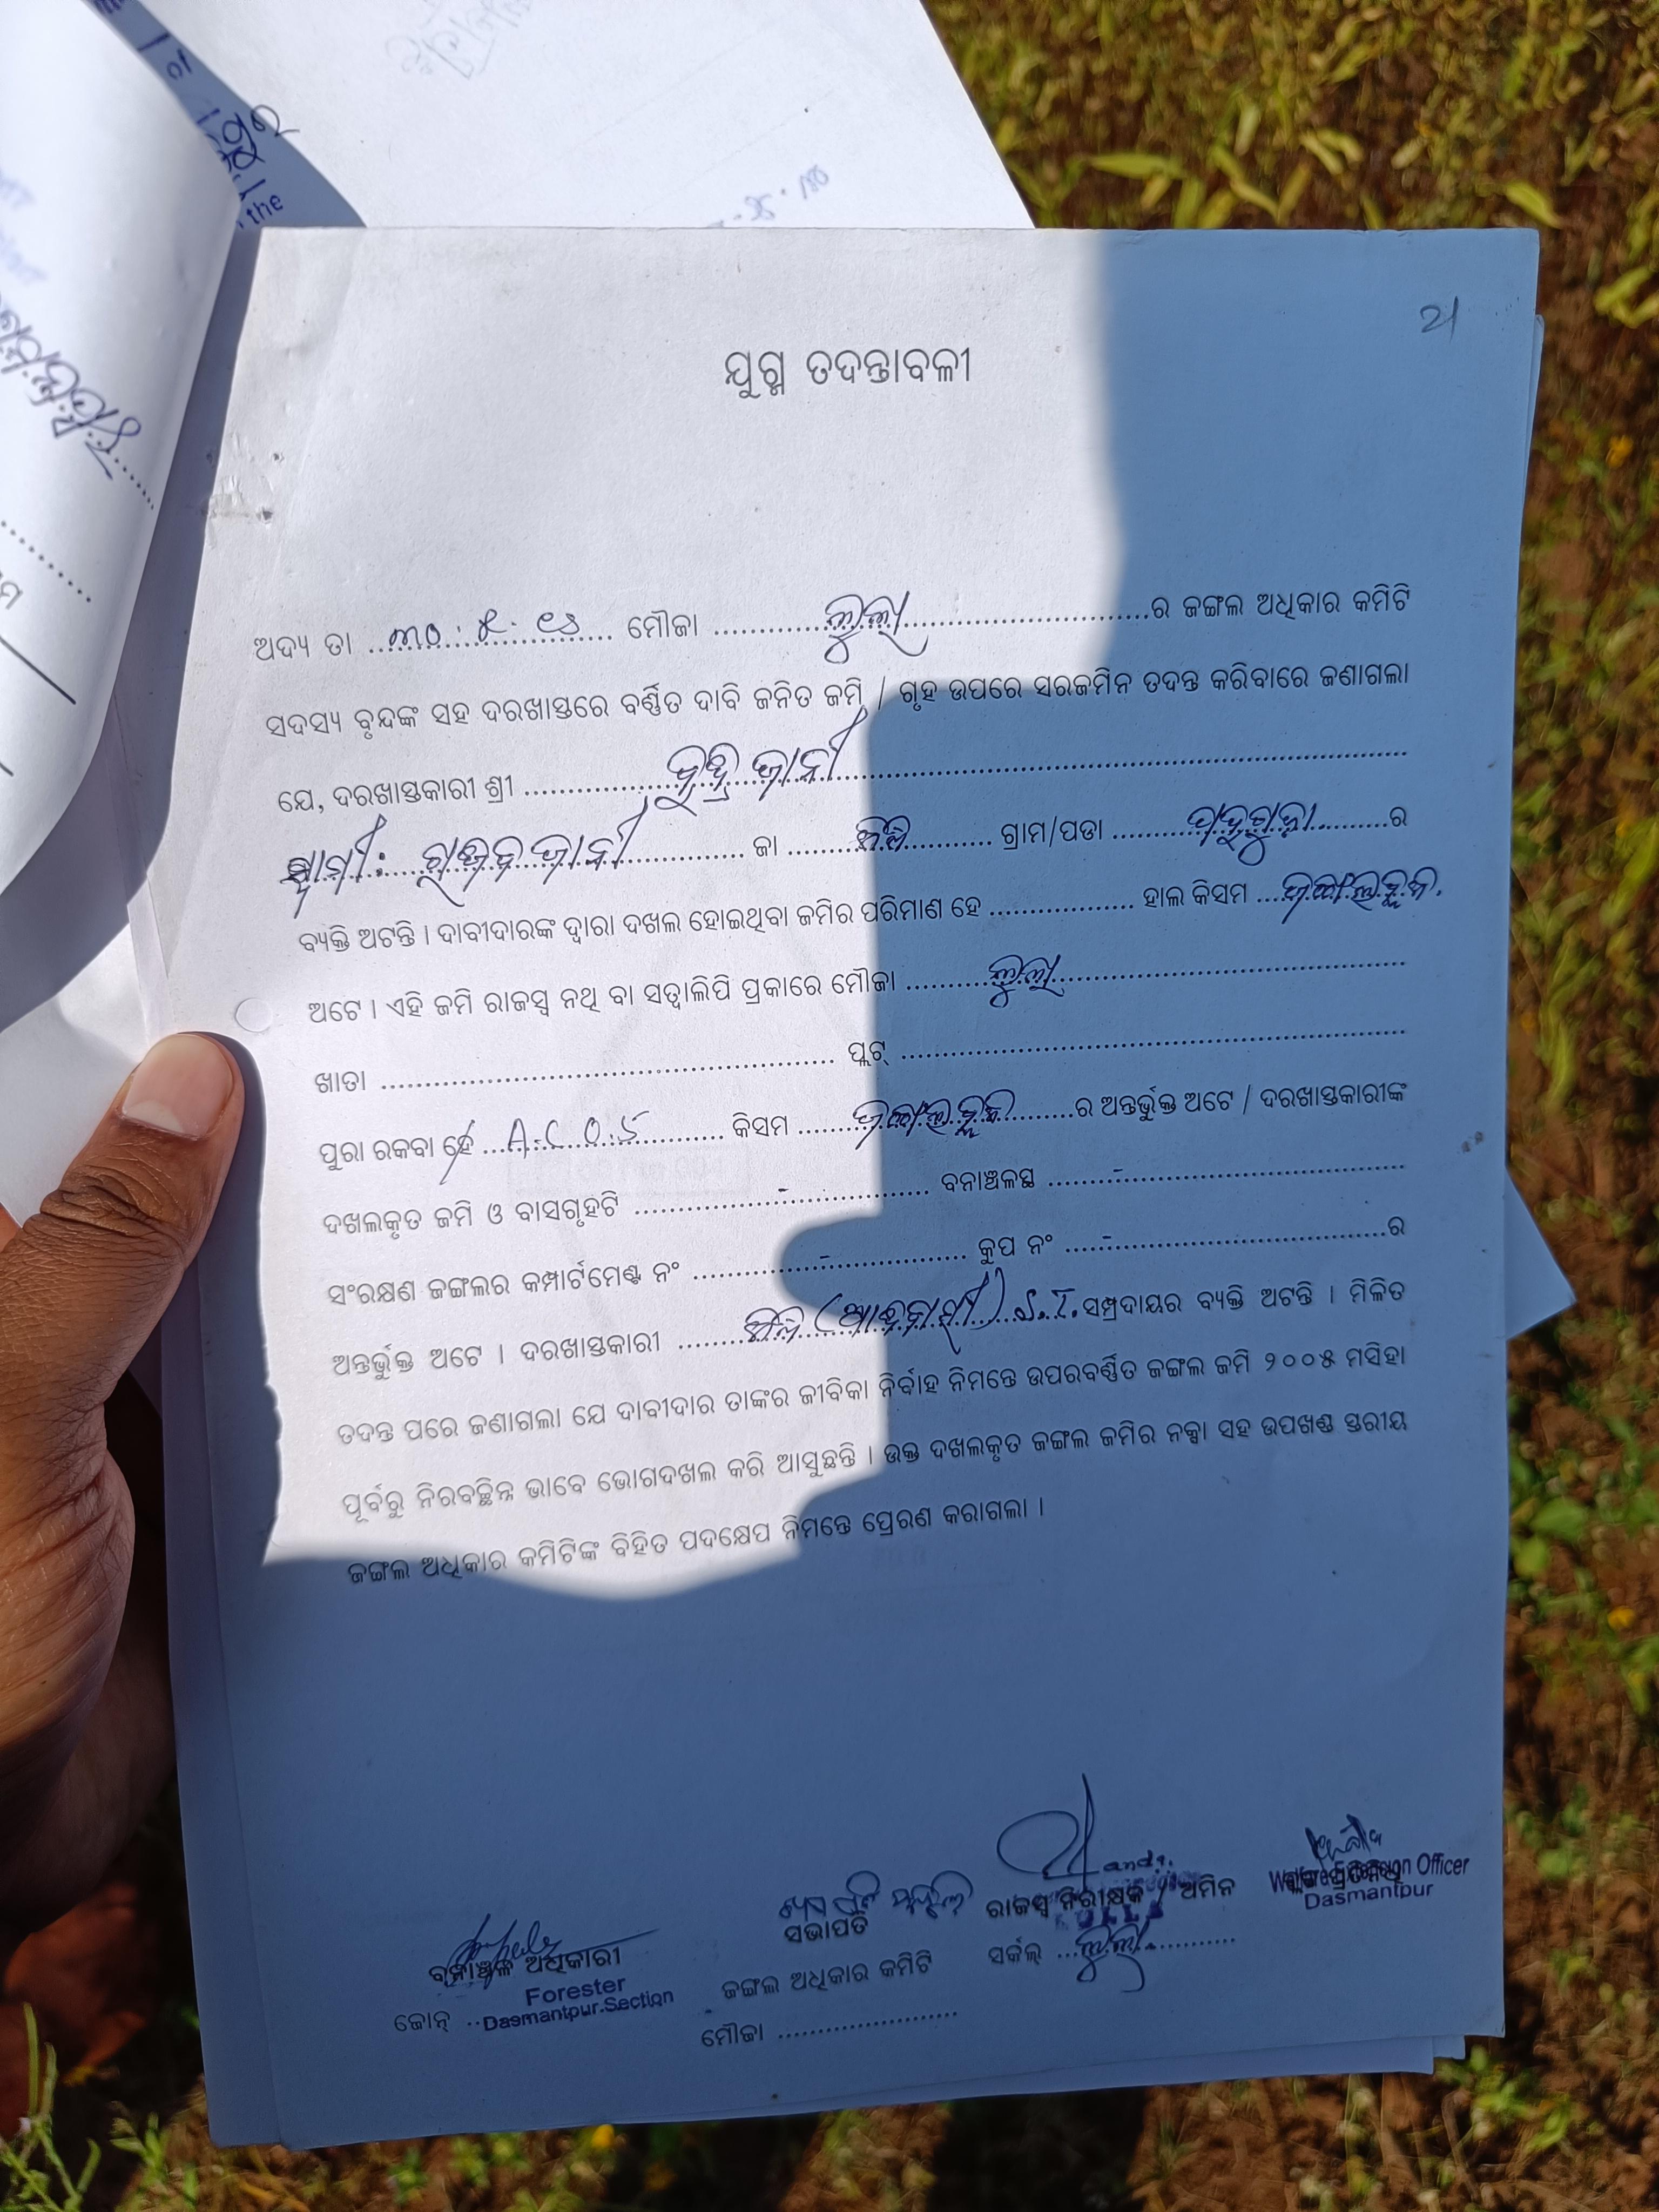 21
ଯୁଗ୍ମ ତଦନ୍ତାବଳୀ
ଅଦ୍ୟ ତା ..୩୦.୫.୧୬.. ମୌଜା .....ଲୁଲା.....ର ଜଙ୍ଗଲ ଅଧିକାର କମିଟି
ସଦସ୍ୟ ବୃନ୍ଦଙ୍କ ସହ ଦରଖାସ୍ତରେ ବର୍ଣ୍ଣିତ ଦାବି ଜନିତ ଜମି / ଗୃହ ଉପରେ ସରଜମିନ ତଦନ୍ତ କରିବାରେ ଜଣାଗଲା
ଯେ, ଦରଖାସ୍ତକାରୀ ଶ୍ରୀ ..... ଜାନୀ .....
ସ୍ଵାମୀ: ଜାନୀ ..... ଜା ..... ଗ୍ରାମ/ପଡା ..... ର
ବ୍ୟକ୍ତି ଅଟନ୍ତି । ଦାବୀଦାରଙ୍କ ଦ୍ୱାରା ଦଖଲ ହୋଇଥିବା ଜମିର ପରିମାଣ ହେ ..... ହାଲ କିସମ .....
ଅଟେ । ଏହି ଜମି ରାଜସ୍ୱ ନଥି ବା ସତ୍ୱାଲିପି ପ୍ରକାରେ ମୌଜା .....ଲୁଲା.....
ଖାତା ..... ପ୍ଲଟ୍ .....
ପୁରା ରକବା ହେ ..A.C 0.5.. କିସମ ..... ର ଅନ୍ତର୍ଭୁକ୍ତ ଅଟେ / ଦରଖାସ୍ତକାରୀଙ୍କ
ଦଖଲକୃତ ଜମି ଓ ବାସଗୃହଟି .....-..... ବନାଞ୍ଚଳସ୍ଥ .....-.....
ସଂରକ୍ଷଣ ଜଙ୍ଗଲର କମ୍ପାର୍ଟମେଣ୍ଟ ନଂ .....-..... କୁପ ନଂ .....-.....ର
ଅନ୍ତର୍ଭୁକ୍ତ ଅଟେ । ଦରଖାସ୍ତକାରୀ ..... (ଆଦିବାସୀ) S.T. ସମ୍ପ୍ରଦାୟର ବ୍ୟକ୍ତି ଅଟନ୍ତି । ମିଳିତ
ତଦନ୍ତ ପରେ ଜଣାଗଲା ଯେ ଦାବୀଦାର ତାଙ୍କର ଜୀବିକା ନିର୍ବାହ ନିମନ୍ତେ ଉପରବର୍ଣ୍ଣିତ ଜଙ୍ଗଲ ଜମି ୨୦୦୫ ମସିହା
ପୂର୍ବରୁ ନିରବଚ୍ଛିନ୍ନ ଭାବେ ଭୋଗଦଖଲ କରି ଆସୁଛନ୍ତି । ଉକ୍ତ ଦଖଲକୃତ ଜଙ୍ଗଲ ଜମିର ନକ୍ସା ସହ ଉପଖଣ୍ଡ ସ୍ତରୀୟ
ଜଙ୍ଗଲ ଅଧିକାର କମିଟିଙ୍କ ବିହିତ ପଦକ୍ଷେପ ନିମନ୍ତେ ପ୍ରେରଣ କରାଗଲା ।
ବନାଞ୍ଚଳ ଅଧିକାରୀ
Forester
ଜୋନ୍ .. Dasmantpur Section
ସଭାପତି
ଜଙ୍ଗଲ ଅଧିକାର କମିଟି
ମୌଜା .....
ରାଜସ୍ୱ ନିରୀକ୍ଷକ / ଅମିନ
ସର୍କଲ୍ ...ଲୁଲା.....
Welfare Extension Officer
Dasmantpur
the